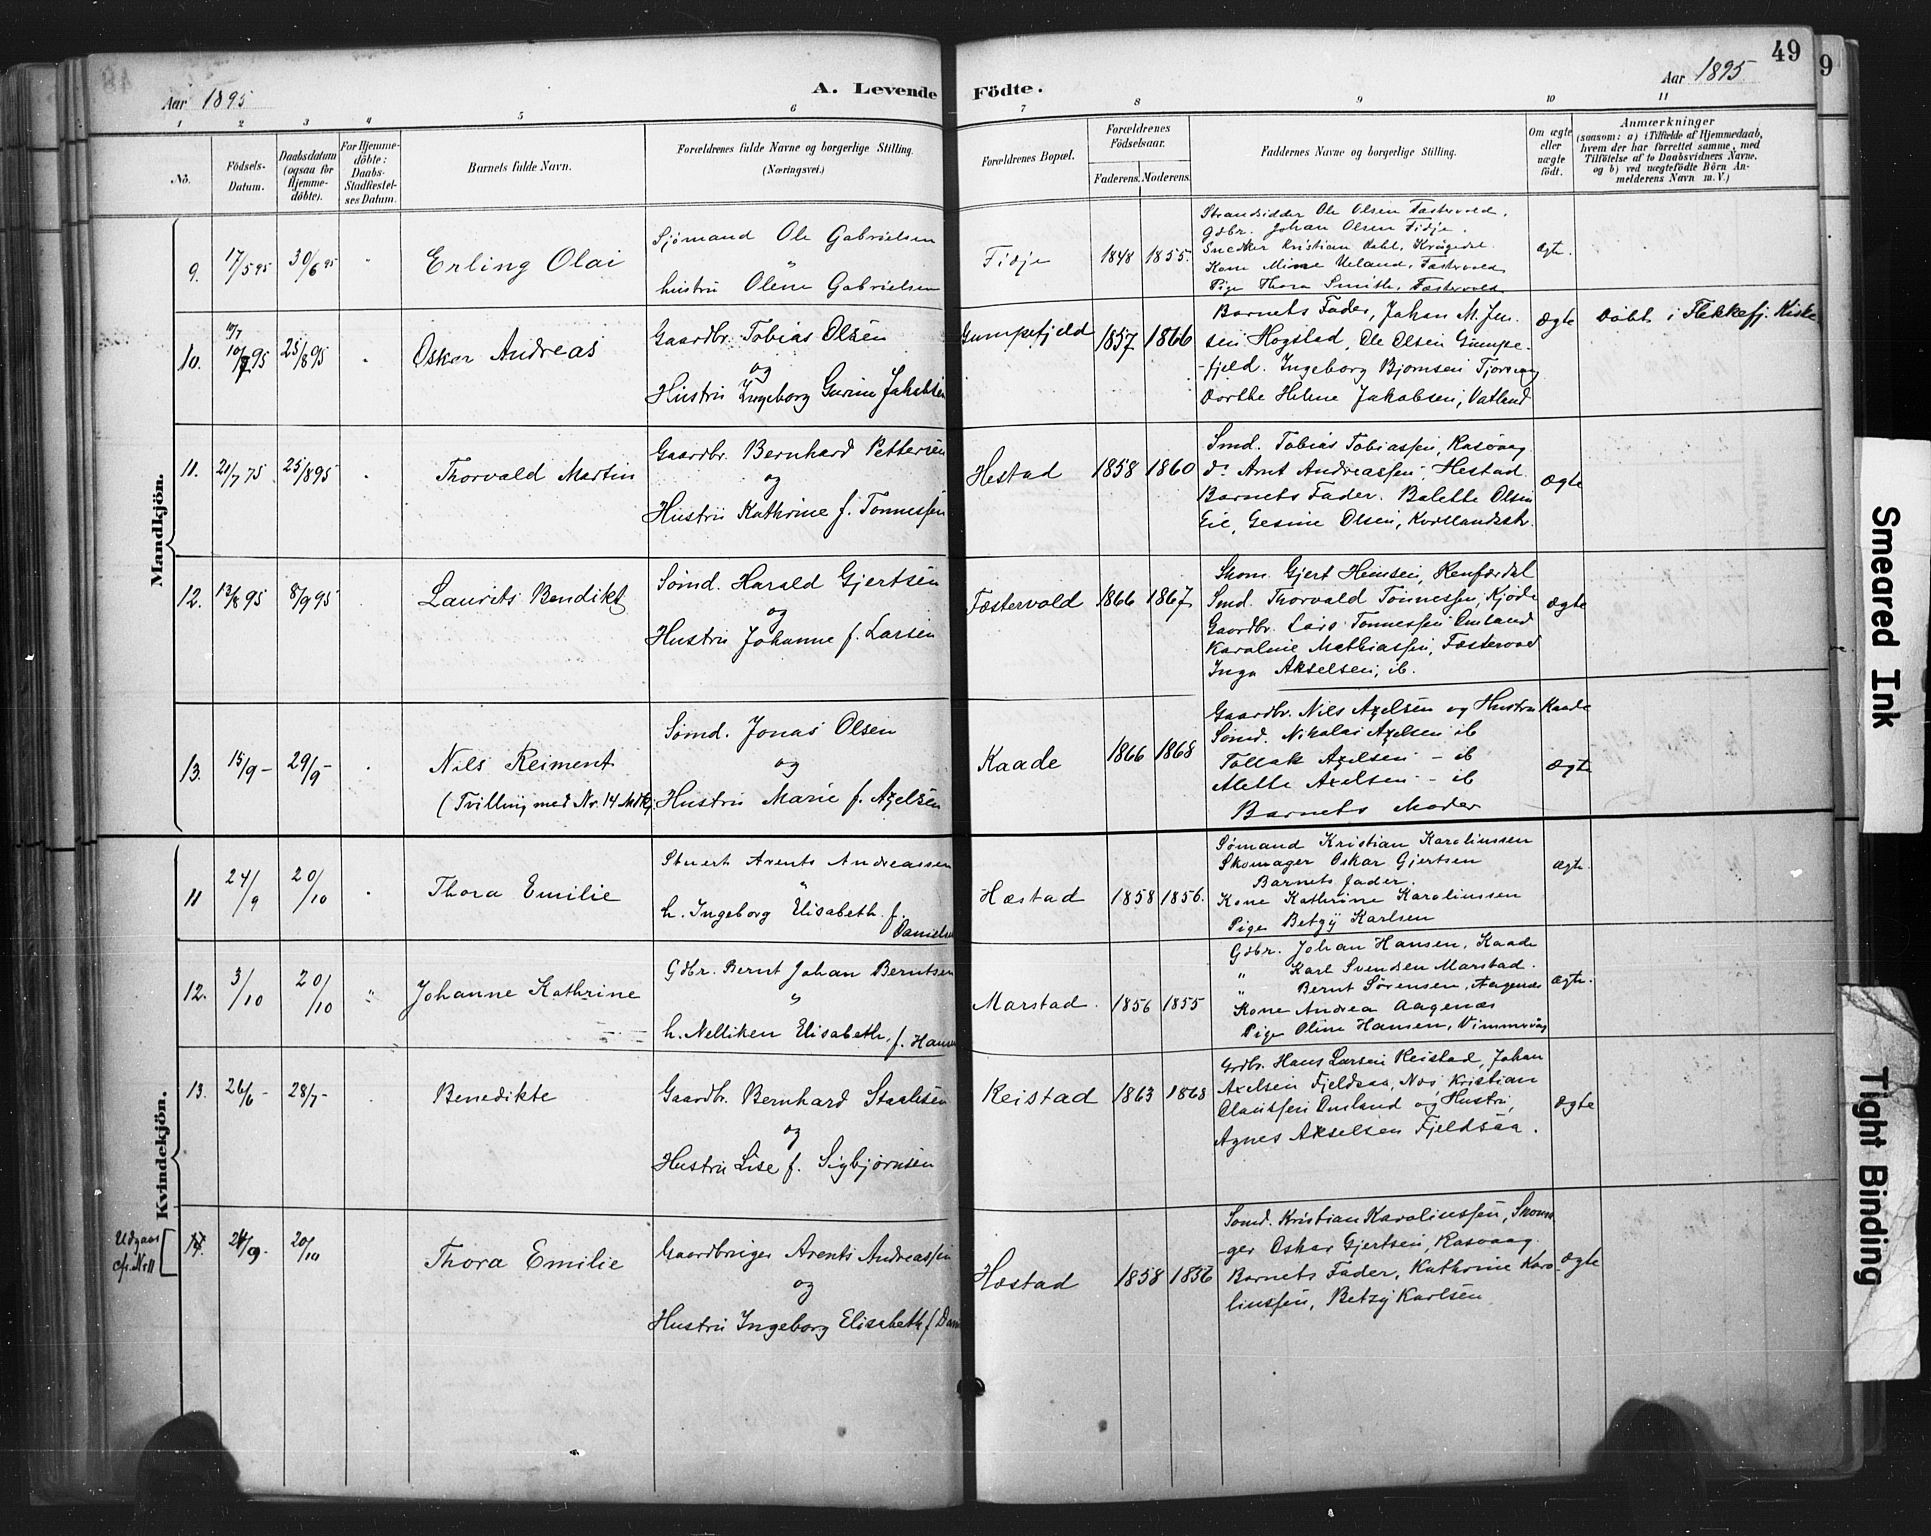 49
9
Aar 1895
A. Levende Födte.
Aar 1895
1 2 3 4 5 6 7 8 9 10 11
No.
Födsels-Datum.
Daabsdatum (ogsaa for Hjemme-döbte).
For Hjemme-döbte: Daabs-Stadfæstel-ses Datum.
Barnets fulde Navn.
Forældrenes fulde Navne og borgerlige Stilling. (Næringsvei.)
Forældrenes Bopæl.
Forældrenes Födselsaar.
Faderens. Moderens.
Faddernes Navne og borgerlige Stilling.
Om ægte eller uægte födt.
Anmærkninger
(saasom: a) i Tilfælde af Hjemmedaab,
hvem der har forrettet samme, med
Tilföielse af to Daabsvidners Navne,
og b) ved uægtefödte Börn An-
melderens Navn m. V.)
Mandkjön.
9. 17/5 95 30/6 95 " Erling Olai
Sjömand Ole Gabrielsen
"
hustru Olene Gabrielsen
Fidje 1848 1855.
Strandsidder Ole Olsen Fæstervold.
Gdbr. Johan Olsen Fidje.
Snedker Kristian Dahl, Krågedal
Kone Mime Ueland, Fæstervold
Pige Thora Smith, Fæstervold
ægt.
10. 10/7 95 25/8 95 " Oskar Andreas
Gaardbr. Tobias Olsen
og
Hustru Ingeborg Gurine Jakobsen
Gumpefjeld 1857 1866
Barnets Fader, Johan M. Jen-
sen Hogstad, Ole Olsen Gumpe-
-fjeld. Ingeborg Bjornsen Tjorsvaag
Dorthe Helene Jakobsen, Vatland
ægte Döbt i Flekkefj. Kirke
11. 21/7 75 25/8 95 " Thorvald Martin
Gaardbr. Bernhard Pettersen
og
Hustru Kathrine f. Tonnessen
Hestad 1858 1860
Smd. Tobias Tobiassen, Rasvaag
do Arnt Andreassen, Hestad
Barnets Fader. Balette Olsen
Eie, Gesine Olsen,
ægte
12. 13/8 95 8/9 95 Laurits Bendikt
Sömd. Harald Gjertsen
og
Hustru Johanne f. Larsen
Fæstervold 1866 1867
Skom. Gjert Heinsen, Renfærdal
Smd. Thorvald Tönnessen, Kjöde
Gaardbr. Lars Tonnessen Omland
Karoline Mathiassen, Fæstervold
Inga Akselsen, ib.
ægte
13. 15/9 - 29/9 - " Nils Reimert
(Tvilling med Nr. 14 Mdkj.
Sömd. Jonas Olsen
og
Hustru Marie f. Axelsen
Kaade 1866 1868
Gaardbr. Nils Axelsen og Hustru Kaade
Sömd. Nikolai Axelsen ib
Tollak Axelsen - ib
Mette Axelsen - ib
Barnets Moder
ægte
Kvindekjön.
11 24/9 20/10 " Thora Emilie
Stuert Arents Andreassen
"
h. Ingeborg Elisabeth f.
Danielsen
Hæstad 1858 1856.
Sömand Kristian Karolinssen
Skomager Oskar Gjertsen
Barnets fader,
Kone Kathrine Karolinssen
Pige Betzy Karlsen
ægt.
12. 3/10 20/10 " Johanne Kathrine
Gdbr. Bernt Johan Berntsen
"
h. Nelliken Elisabeth, f. Hansen
Marstad. 1856 1855
Gdbr. Johan Hansen, Kaade
" Karl Svendsen Marstad.
" Bernt Sörensen, Aagenæs
Kone Andrea Aagenæs
Pige Oline Hansen,
ægt.
13. 26/6 - 28/7 - Benedikte
Gaardbr. Bernhard Staalesen
og
Hustru Lise f. Sigbjörnsen
Reistad 1863 1868
Grdbr. Hans Larsen Reistad, Johan
Axelsen Fjeldsaa, Kristian
Claussen Omland og Hustru,
Agnes Akselsen Fjeldsaa.
ægte
Udgaar
cfr. N. 11
14. 24/9 - 20/10 Thora Emilie
Gaardbruger Arents Andreassen
og
Hustru Ingeborg Elisabeth f. Dan
Hæstad 1858 1856
Somd. Kristian Karolinssen, Skoma-
-ger Oskar Gjertsen, Rasvaag
Barnets Fader, Kathrine Karo-
linssen, Betzy Karlsen
ægte
Smeared Ink
Tight Binding